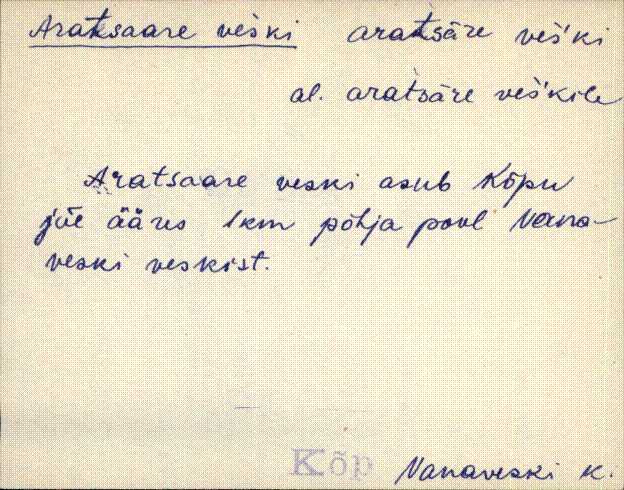 Aratsaare veśki aratsāre veśki
al. aratsāre veśkile
Aratsaare veski asub Kõpu
jõe ääres 1km põhja pool Vana-
veski veskist.
Kõp Vanaveski k.